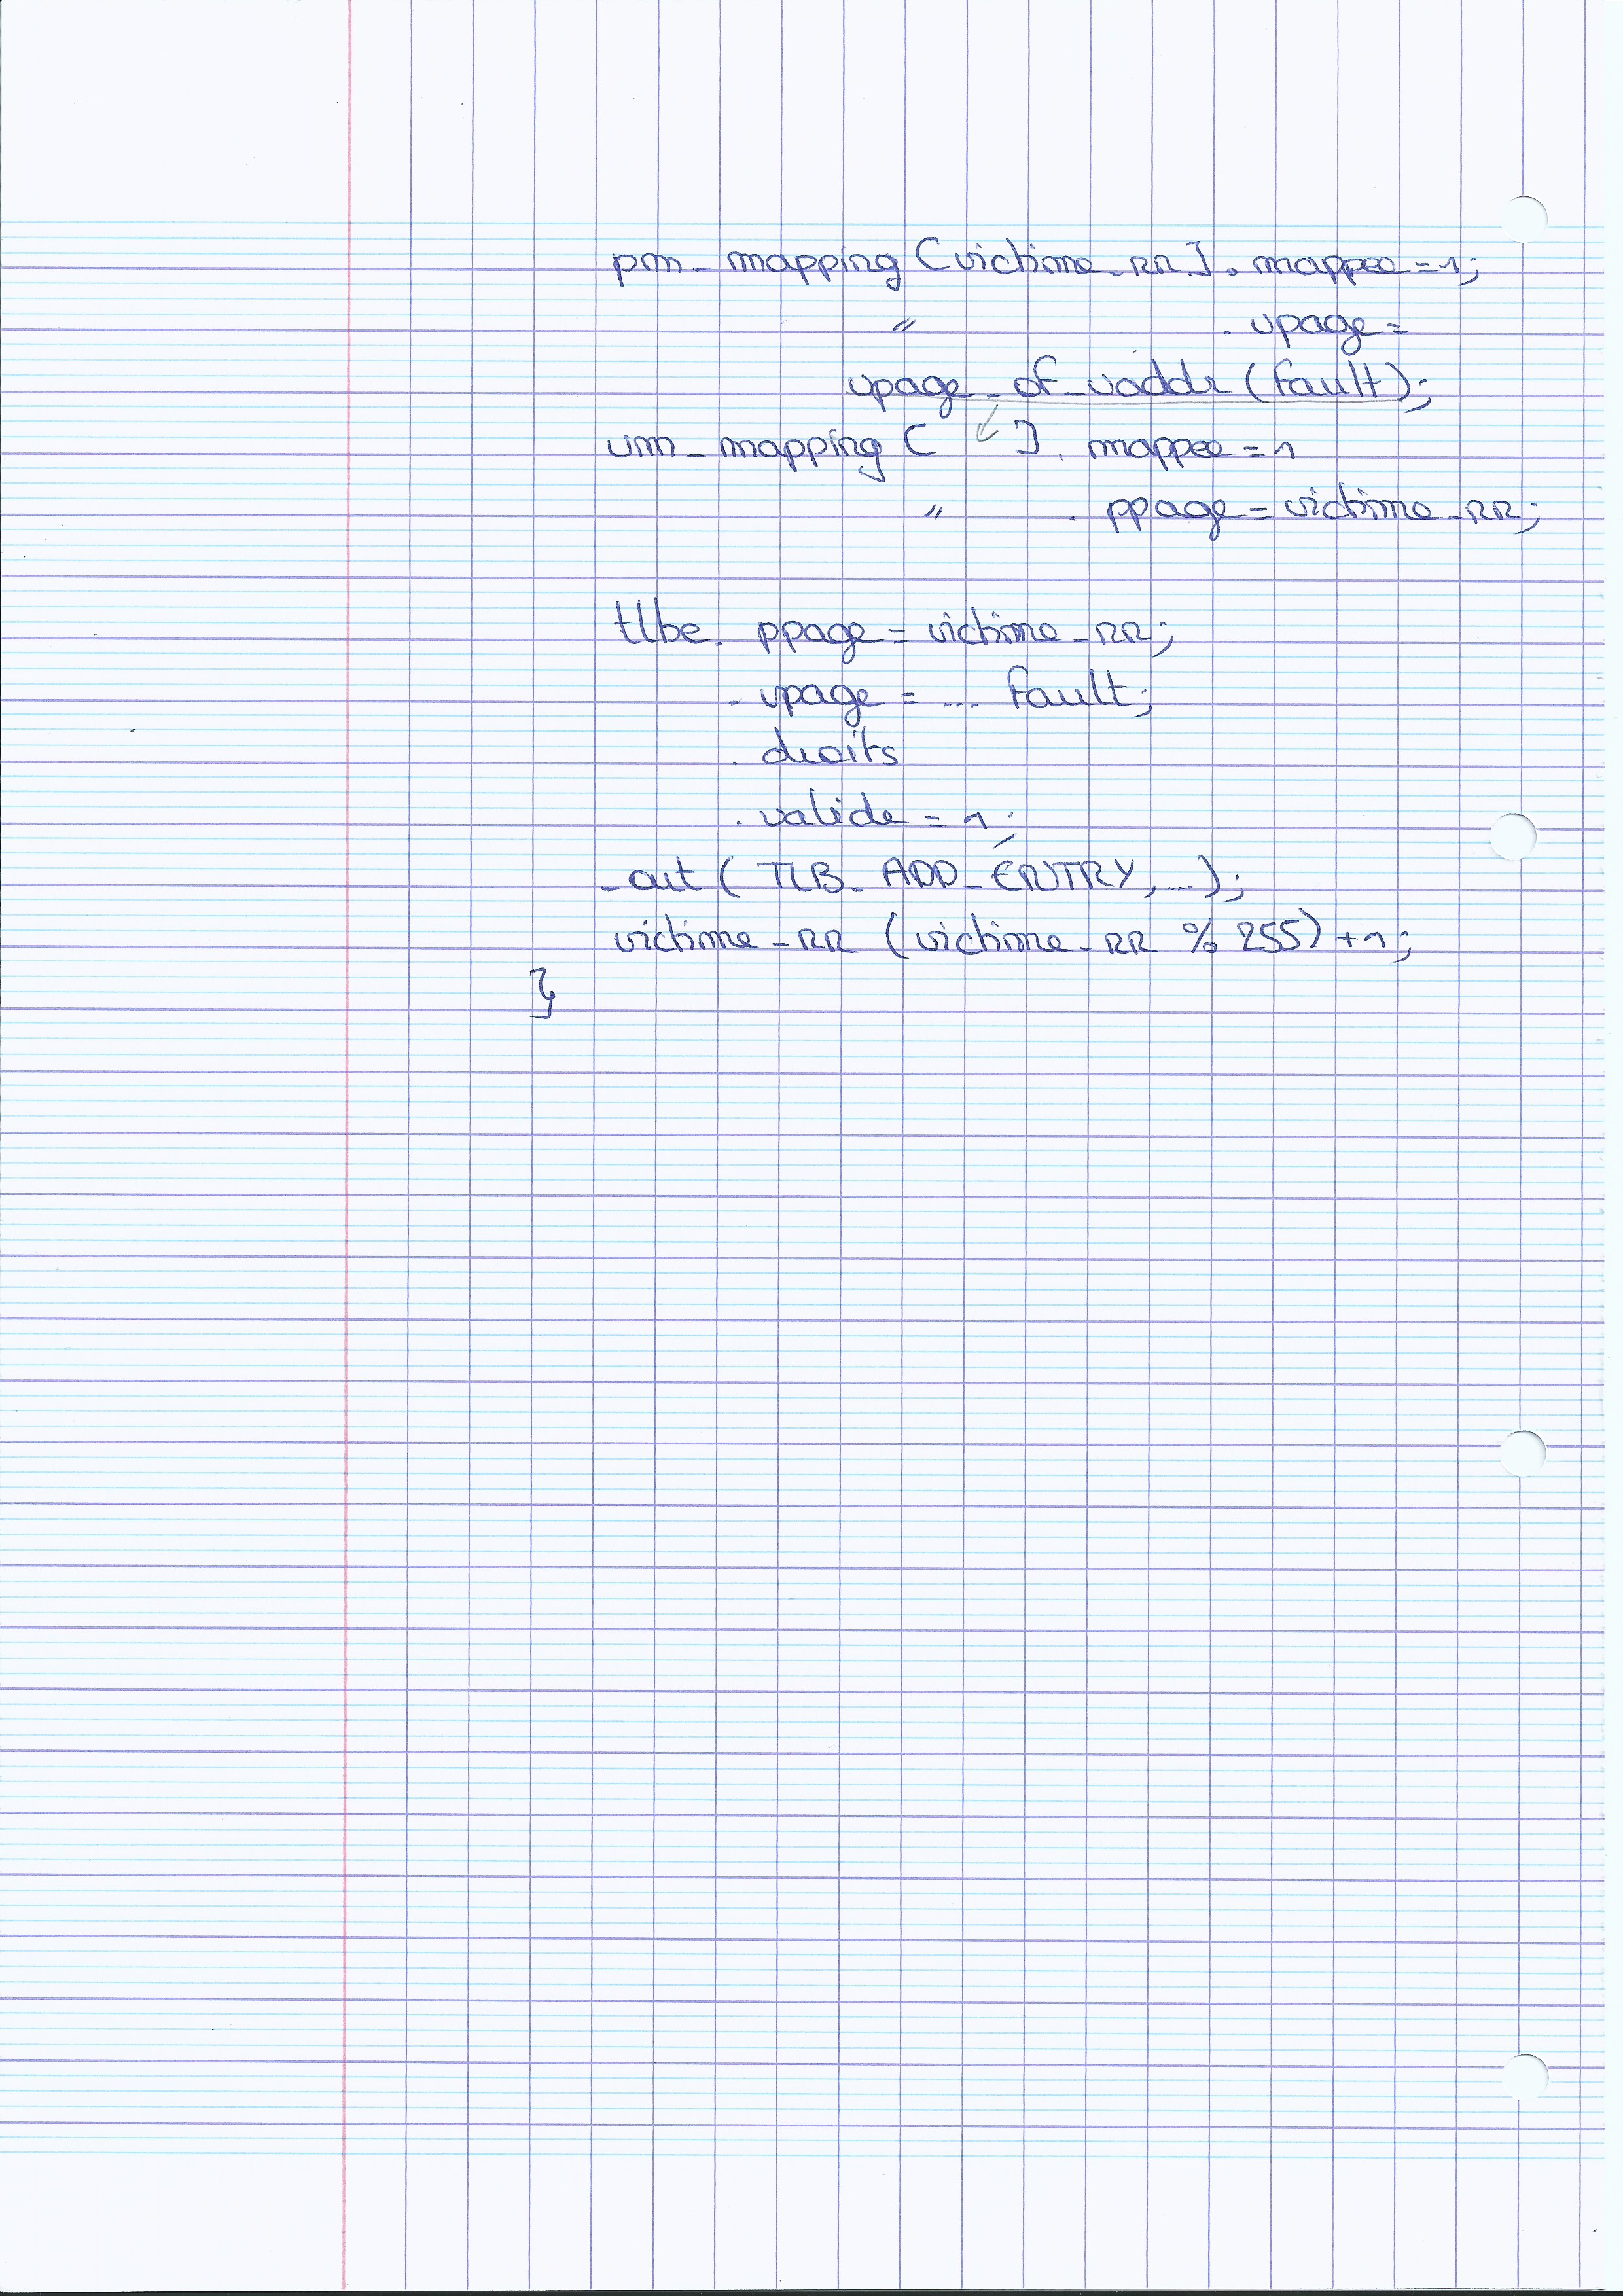 pm_mapping [victime_RR]. mappee = 1;
" . vpage =
vpage_of_vaddr (fault);
vm_mapping [ ↙ ]. mappee = 1
" . ppage = victime_RR;
tlbe. ppage = victime_RR;
. vpage = ... fault;
. droits
. valide = 1;
_out ( TLB_ADD_ENTRY, ...);
victime_RR (victime_RR % 255) + 1;
}